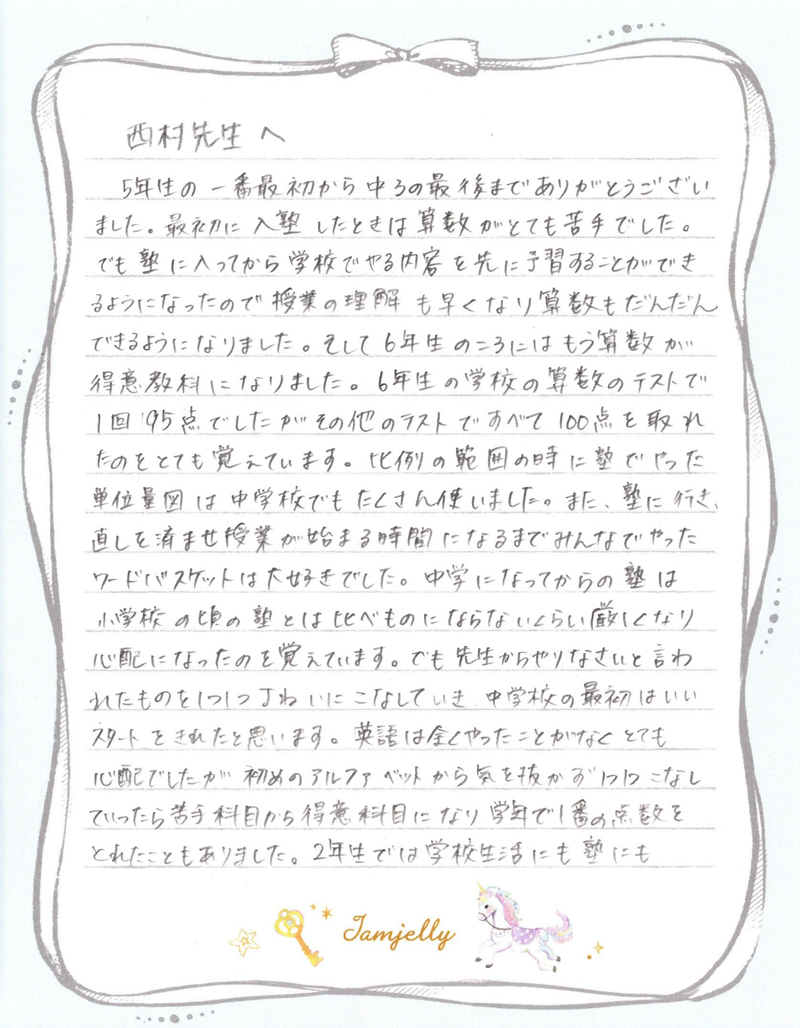 西村先生へ
5年生の一番最初から中3の最後までありがとうござい
ました。最初に入塾したときは算数がとても苦手でした。
でも塾に入ってから学校でやる内容を先に予習することができ
るようになったので授業の理解も早くなり算数もだんだん
できるようになりました。そして6年生のころにはもう算数が
得意教科になりました。6年生の学校の算数のテストで
1回95点でしたがその他のテストですべて100点を取れ
たのをとても覚えています。比例の範囲の時に塾でやった
単位量図は中学校でもたくさん使いました。また、塾に行き、
直しを済ませ授業が始まる時間になるまでみんなでやった
ワードバスケットは大好きでした。中学になってからの塾は
小学校の頃の塾とは比べものにならないくらい厳しくなり
心配になったのを覚えています。でも先生からやりなさいと言わ
れたものを1つ1つ丁ねいにこなしていき中学校の最初はいい
スタートをきれたと思います。英語は全くやったことがなくとても
心配でしたが初めのアルファベットから気を抜かず1つ1つこなし
ていったら苦手科目から得意科目になり学年で1番の点数を
とれたこともありました。2年生では学校生活にも塾にも
Jamjelly